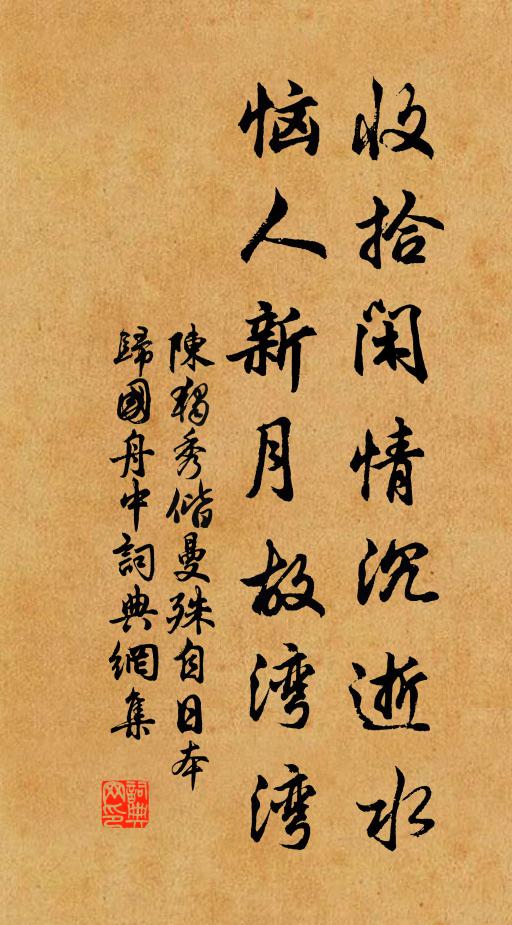 收拾閑情沉逝水
恼人新月故湾湾
陳獨秀偕曼殊自日本
歸國舟中詞典網集
詞典网印